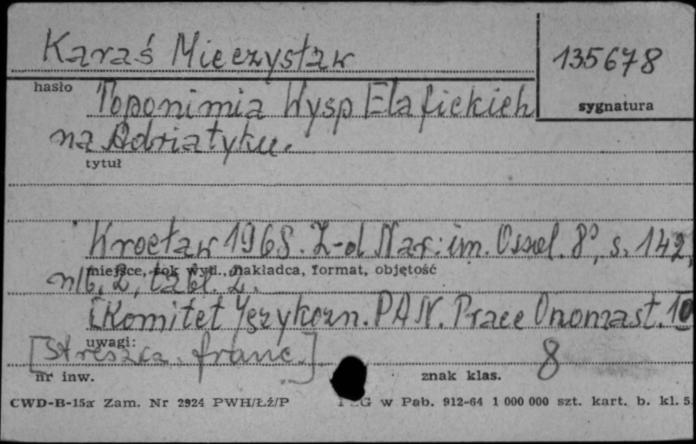 Karaś Mieczysław
135678
hasło
sygnatura
Toponimia Wysp Elafickich
na Adriatyku.
tytuł
Wrocław 1968. Z-d Nar. im. Ossol. 8°, s. 142,
miejsce, rok wyd., nakładca, format, objętość
nlb. 2, tabl. 2.
[Komitet Językozn. PAN. Prace Onomast. 10
uwagi:
[Streszcz. franc.]
8
nr inw.
znak klas.
CWD-B-15a Zam. Nr 2924 PWH/Łż/P
w Pab. 912-64 1 000 000 szt. kart. b. kl. 5